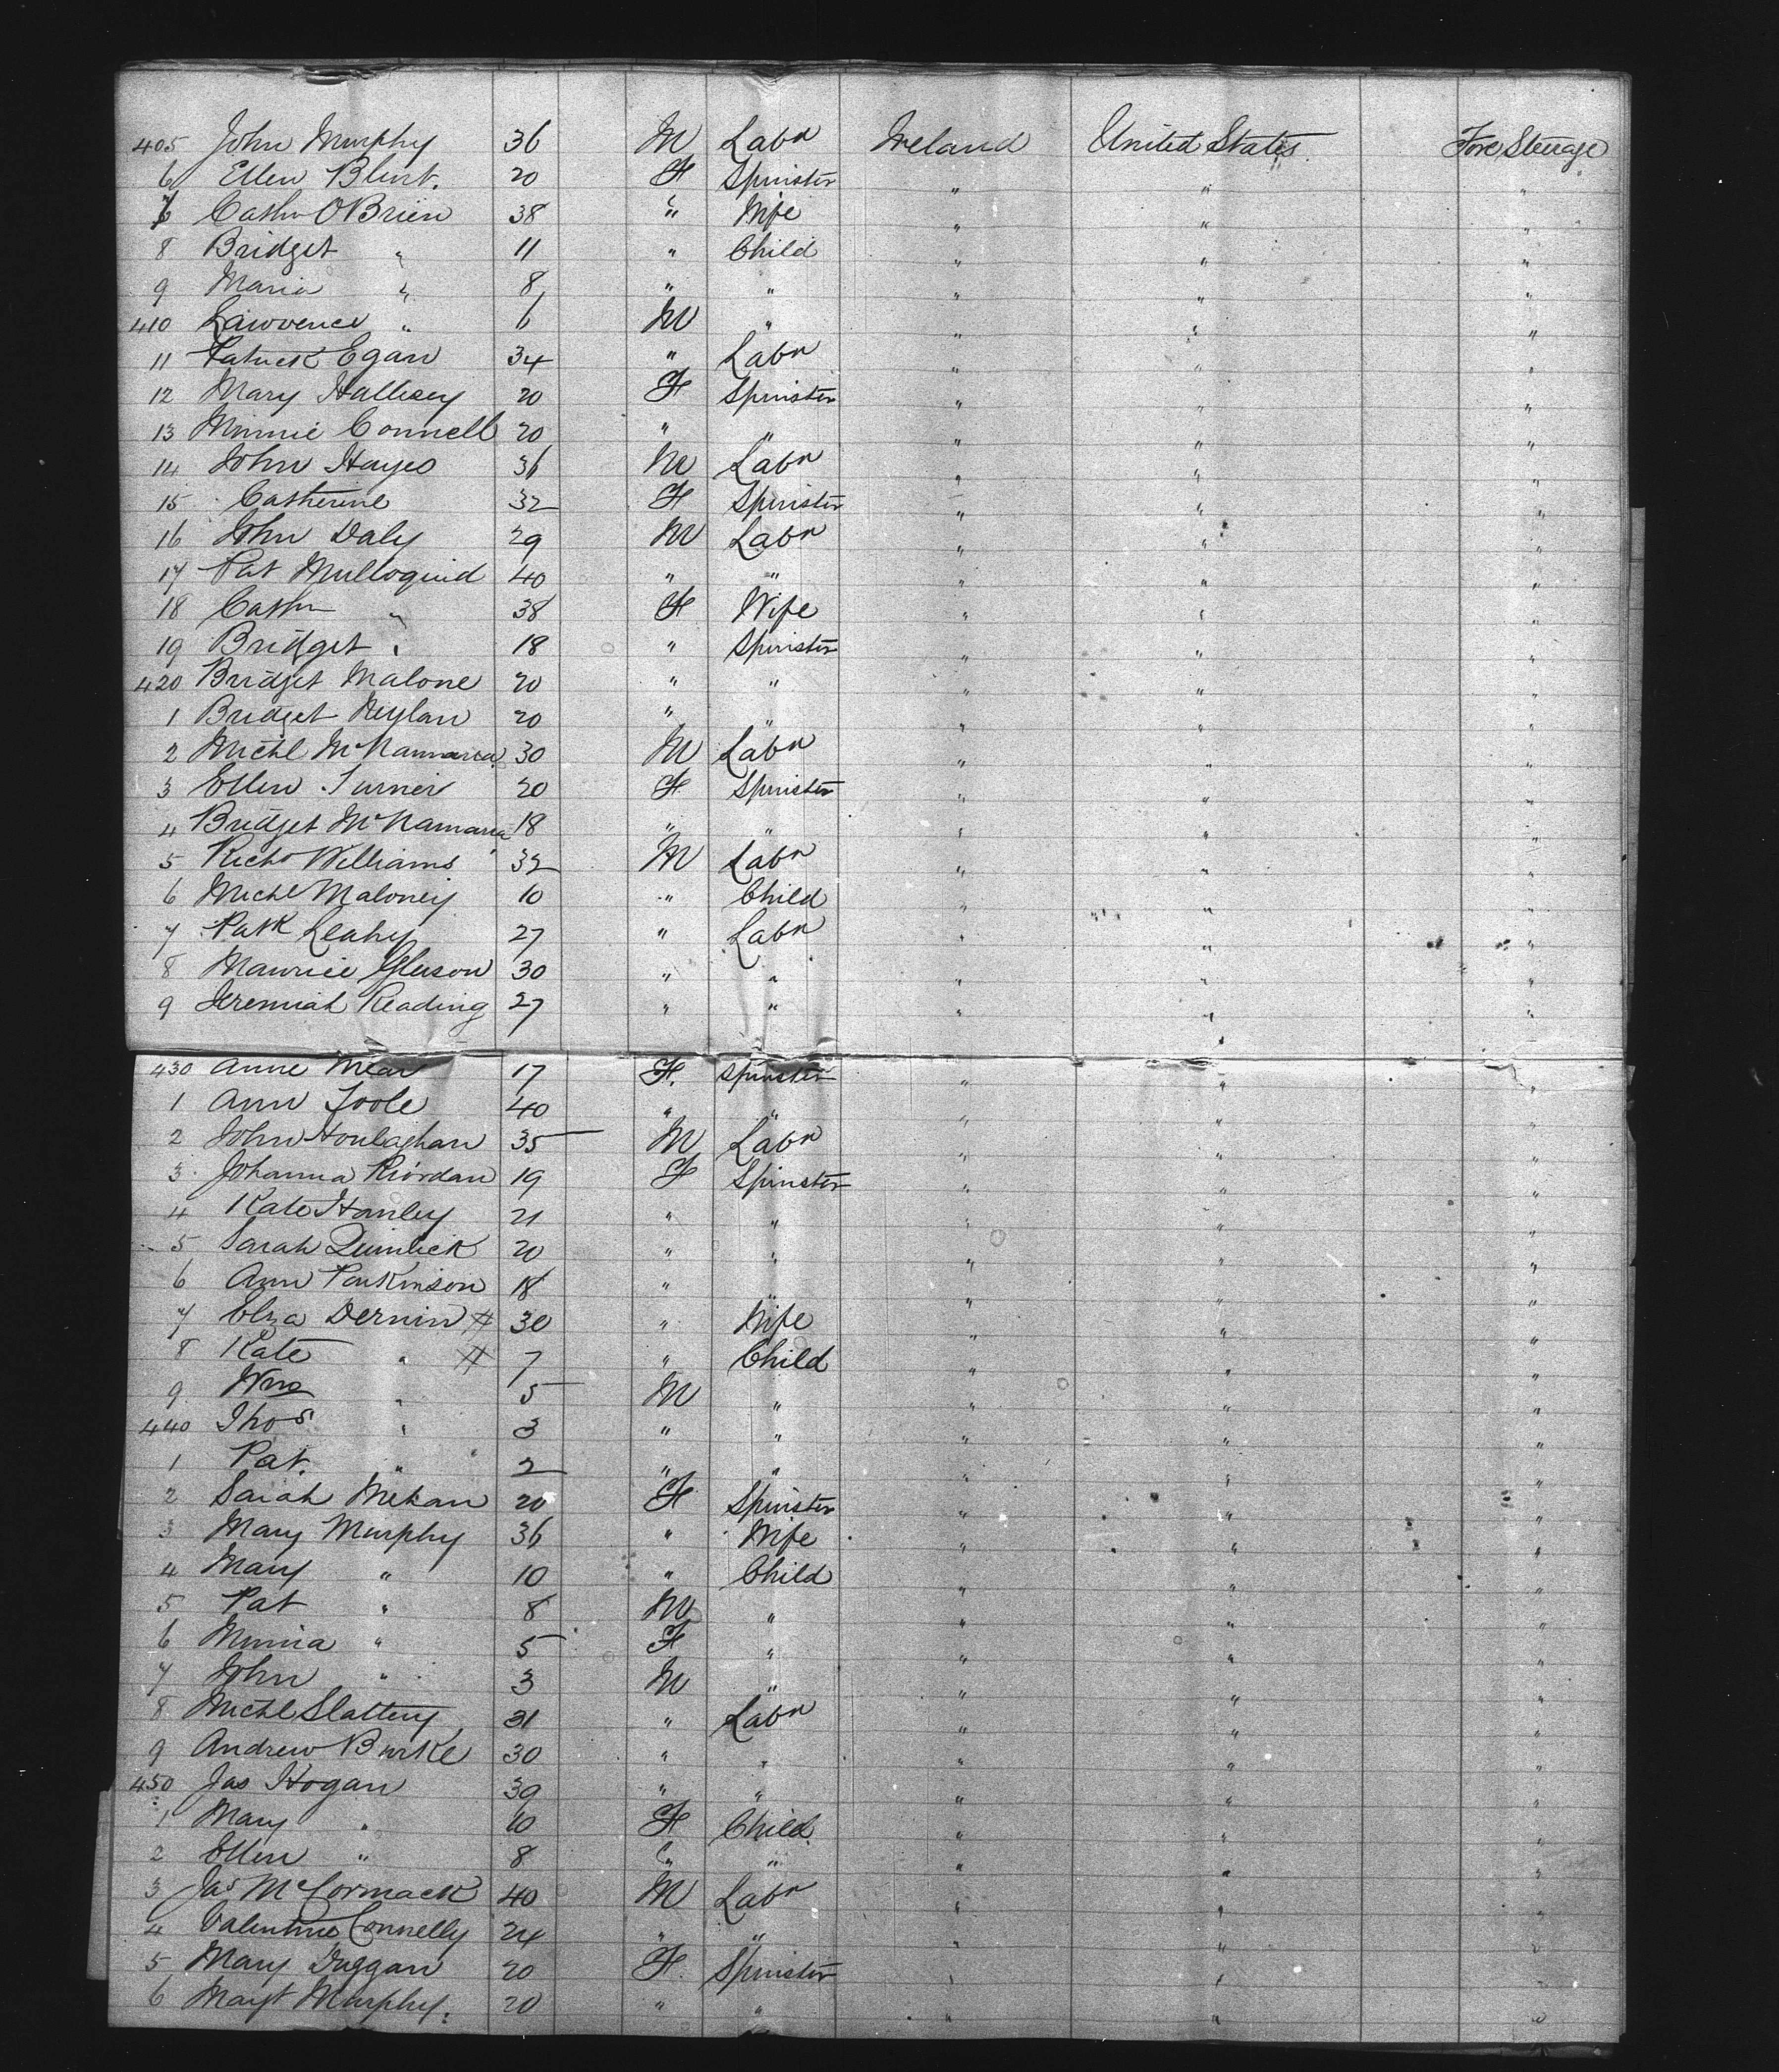 405 John Murphy 36 M Labr Ireland United States Fore Steerage
6 Ellen Blunt. 20 F Spinster " " "
7 Cathn OBrien 38 " Wife " " "
8 Bridget " 11 " Child " " "
9 Maria " 8 " " " " "
410 Lawrence " 6 M " " " "
11 Patrick Egan 34 " Labr " " "
12 Mary Hallisey 20 F Spinster " " "
13 Minnie Connell 20 " " " " "
14 John Hayes 36 M Labr " " "
15 Catherine 32 F Spinster " " "
16 John Daly 29 M Labr " " "
17 Pat Mulloquid 40 " " " " "
18 Cathn " 38 F Wife " " "
19 Bridget " 18 " Spinster " " "
420 Bridget Malone 20 " " " " "
1 Bridget Neylan 20 " " " " "
2 Michl McNamara 30 M Labr " " "
3 Ellen Turner 20 F Spinster " " "
4 Bridget McNamara 18 " " " " "
5 Richd Williams 32 M Labr " " "
6 Michl Maloney 10 " Child " " "
7 Patk Leahy 27 " Labr " " "
8 Maurice Gleason 30 " " " " "
9 Jeremiah Reading 27 " " " " "
430 Anne Mear 17 F. Spinster " " "
1 Ann Toole 40 " " " " "
2 John Houlaghan 35 M Labr " " "
3 Johanna Riordan 19 F Spinster " " "
4 Kate Hanley 21 " " " " "
5 Sarah 20 " " " " "
6 Ann Parkinson 18 " " " " "
7 Elza Dernin # 30 " Wife " " "
8 Kate " # 7 " Child " " "
9 Wm " 5 M " " " "
440 Thos " 3 " " " " "
1 Pat. " 2 " " " " "
2 Sarah Mekan 20 F Spinster " " "
3 Mary Murphy 36 " Wife " " "
4 Mary " 10 " Child " " "
5 Pat " 8 M " " " "
6 Minnia " 5 F " " " "
7 John " 3 M " " " "
8 Michl Slattery 31 " Labr " " "
9 Andrew Burke 30 " " " " "
450 Jas Hogan 39 " " " " "
1 Mary " 10 F Child " " "
2 Ellen " 8 " " " " "
3 Jas McCormack 40 M Labr " " "
4 Valentine Connelly 24 " " " " "
5 Mary Duggan 20 F. Spinster " " "
6 Margt Murphy. 20 " " " " "